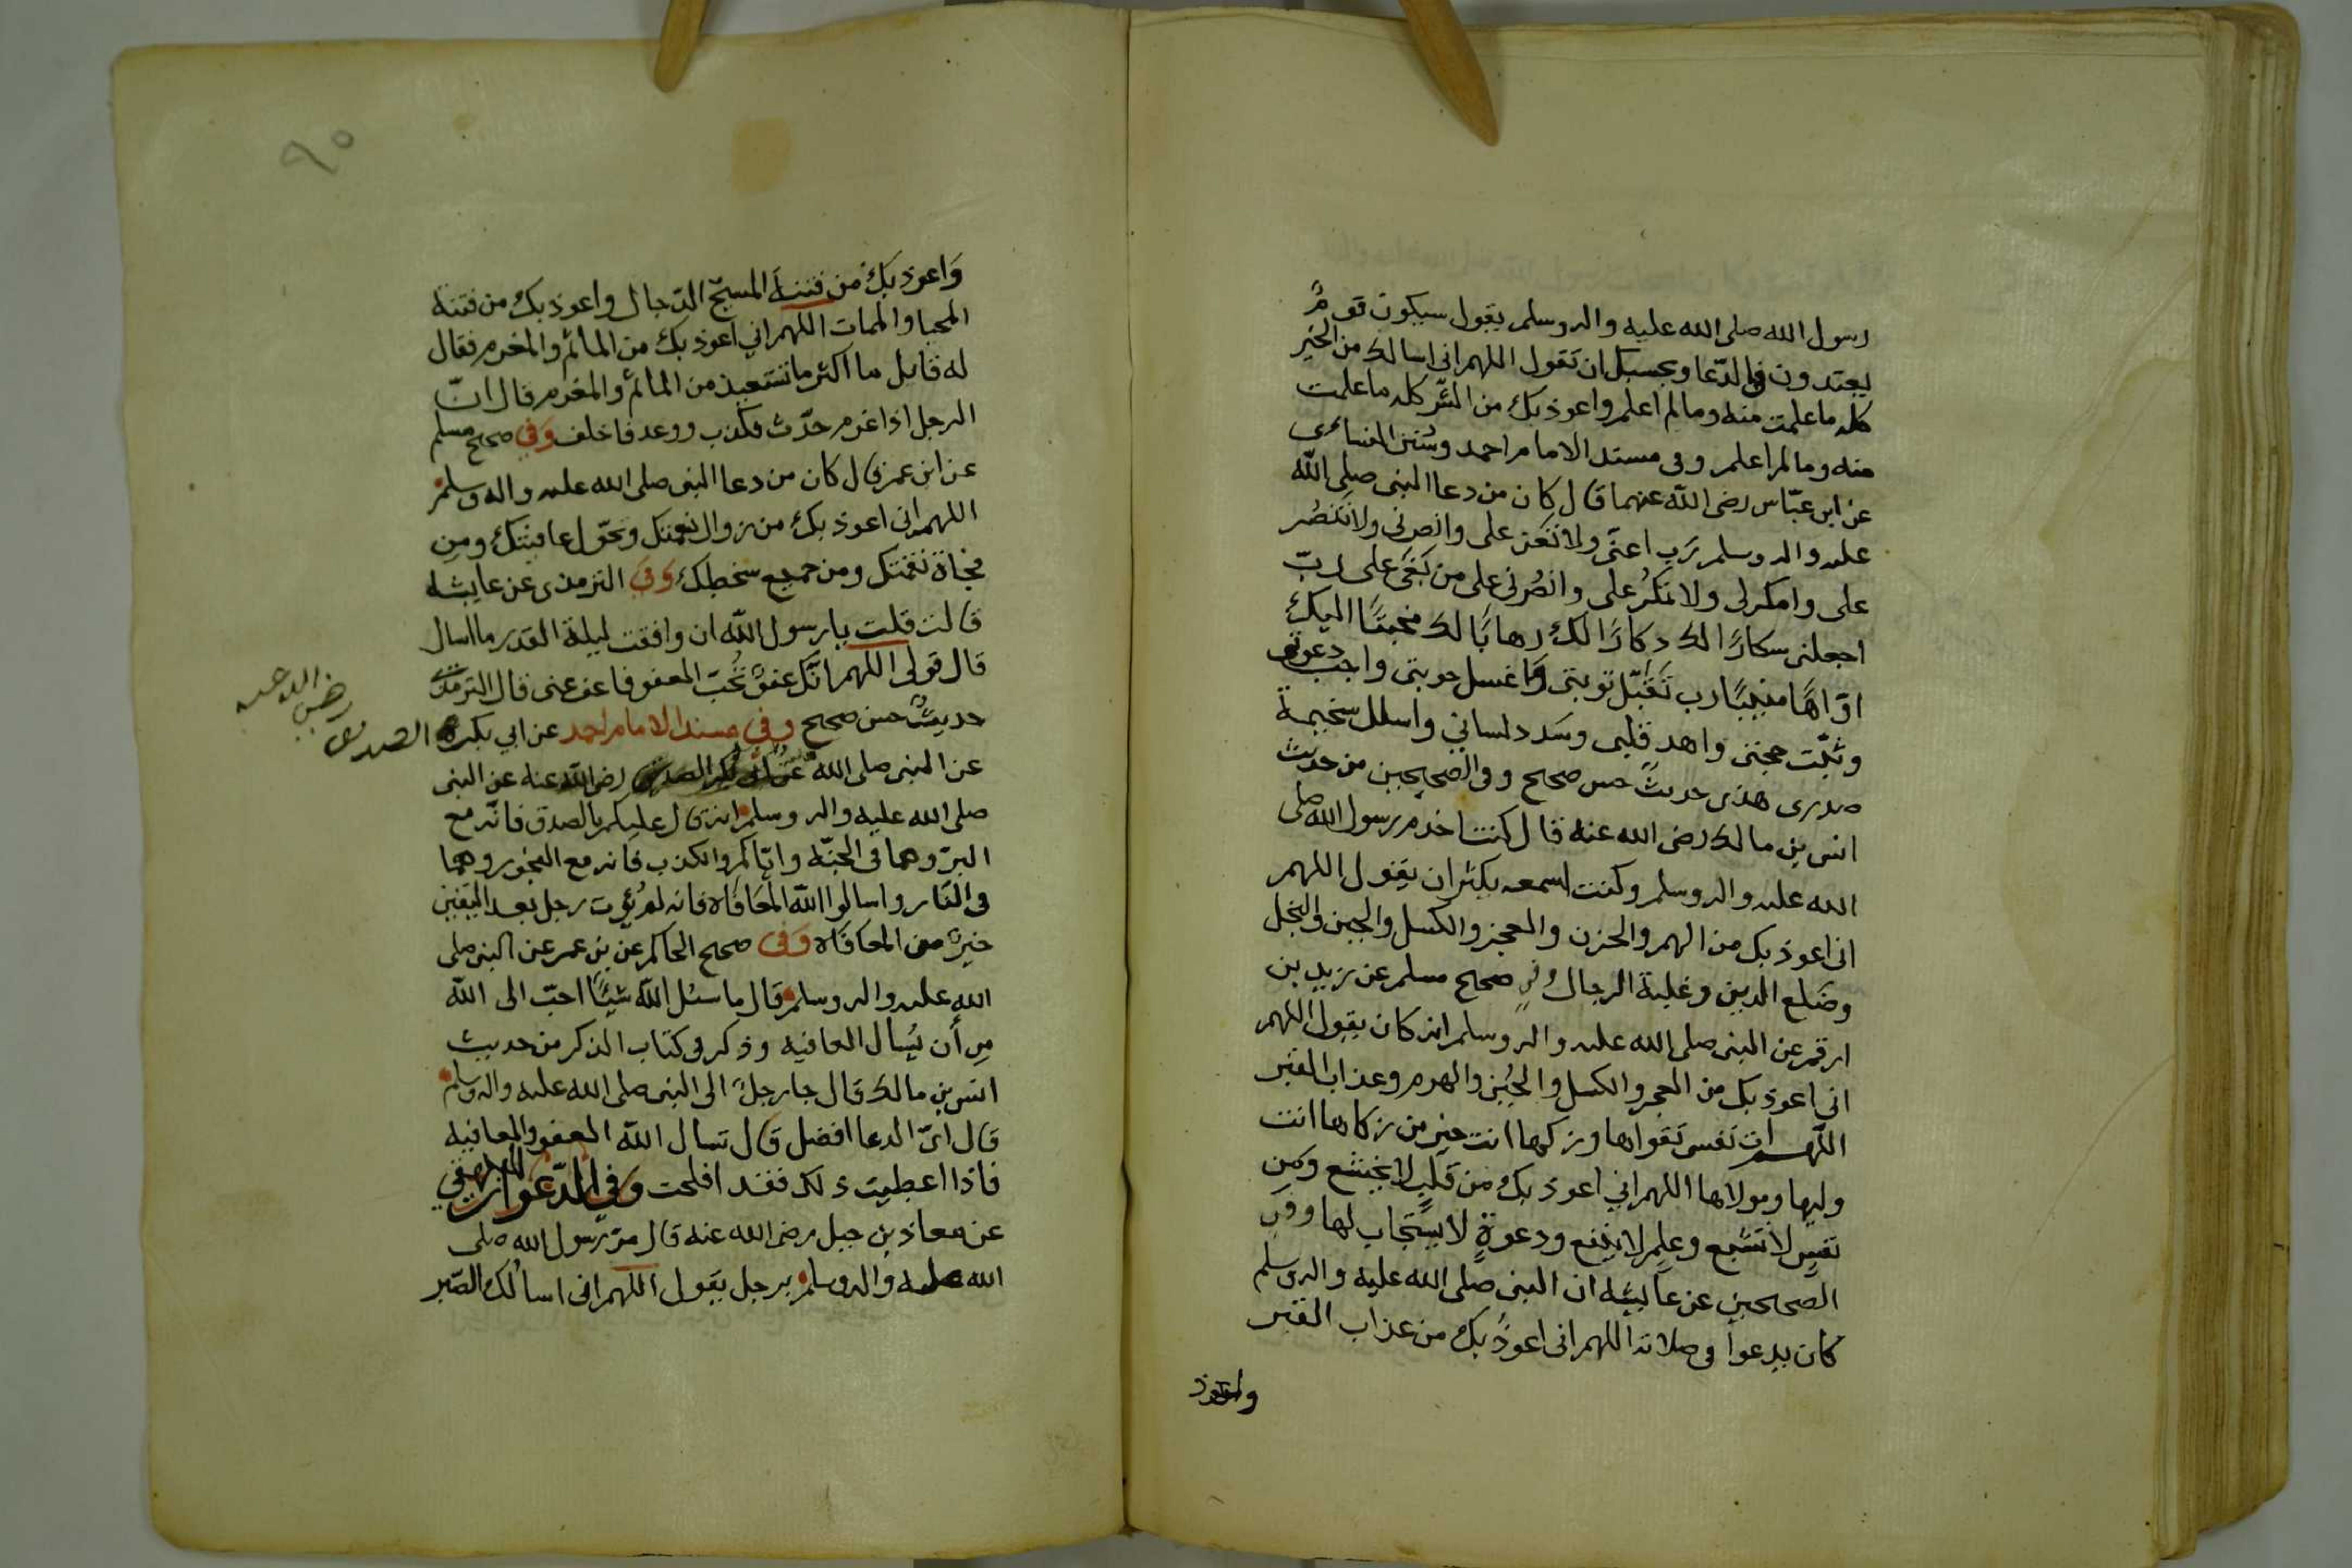 رسول الله صلى الله عليه واله وسلم يقول سيكون قومٌ
يعتدون في الدّعا وبحسبك ان تقول اللهم اني اسالك من الخير
كله ما علمت منه وما لم اعلم واعوذ بك من الشّر كله ما علمت
منه وما لم اعلم وفى مسند الامام احمد وسُنن النسائى
عن ابن عبّاس رضى الله عنهما قال كان من دعا النبى صلى الله
عليه واله وسلم رَب اعنّى ولا تعن على وانصرنى ولا تَنصُر
على وامكر لى ولا تمكرُ على وانصُرنى على من بَغَى على ربّ
اجعلنى سكارًا لك ذكارًا لك رهابًا لك مخبتًا اليك
اوّاهًا منيبًا رب تَقبّل توبتى وَاغسل حوبتى واجب دعوتى
وثبّت حجتى واهد قلبى وسَدد لسانى واسلل سخيمة
صدرى هذى حديثٌ حسن صحيح وفى الصحيحين من حديث
انس بن مالك رضى الله عنه قال كنت اخدم رسول الله صلى
الله عليه واله وسلم وكنت اسمعه يكثر ان يقول اللهم
انى اعوذ بك من الهم والحزن والعجز والكسل والجبن والبخل
وضَلع الدين وغلبة الرجال وفى صحيح مسلم عن زيد بن
ارقم عن النبى صلى الله عليه واله وسلم انه كان يقول اللهم
انى اعوذ بك من العجز والكسل والجُبن والهرم وعذاب القبر
اللّهم ات نَفسى تَقواها وزكها انت خير من زكاها انت
وليها ومولاها اللهم اني اعوذ بك من قَلبٍ لا يخشع ومِن
نفسٍ لا تشبع وعلمٍ لا ينفع ودعوةٍ لا يستجاب لها وفى
الصحيحين عن عايشه ان النبى صلى الله عليه واله وسلم
كان يدعوا فى صلاته اللهم انى اعوذُ بك من عذاب القبر
واعوذ
٩٠
وَاعوذ بك من فتنة المسيح الدّجال واعوذ بك من فتنة
المحيا والممات اللهم اني اعوذ بك من المأثم والمغرم فقال
له قايل ما اكثر ما تستعيذ من المأثم والمغرم قال انّ
الرجل اذا غرم حدّث فكذب ووعد فاخلف وَفي صحيح مسلم
عن ابن عمر قال كان من دعا النبى صلى الله عليه واله وسلم
اللهم انى اعوذ بك من زوال نعمتك وتحّول عافيتك ومِن
فجاة نقمتك ومن جميع سخطك وَفى الترمذى عن عايشه
قالت قلت يا رسول الله ان وافقت ليلة القدر ما اسال
قال قولى اللهم انّك عفوٌ تُحبّ العفو فاعف عنى قال الترمذى
حديثٌ حسن صحيح وفى مسند الامام احمد عن ابي بكر الصديق رضى الله عنه
عن النبى صلى الله عن ابى بكر الصديق رضى الله عنه عن النبى
صلى الله عليه واله وسلم انه قال عليكم بالصدق فانّه مع
البرّ وهما فى الجنّة وايّاكم والكذب فانه مع الفجور وهما
فى النّار واسالوا الله المعَافاه فانه لم يُؤت رجل بعد اليقين
خيرًا من المعافاه وَفى صحيح الحاكم عن بن عمر عن النبى صلى
الله عليه واله وسلم قال ما سئل الله شيًا احبّ الى الله
مِن أن يُسال العافيه وذكر فى كتاب الذكر من حديث
انس بن مالك قال جا رجلٌ الى النبى صلى الله عليه واله وسلم
قال اىّ الدعا افضل قال تسال الله العفو والعافيه
فاذا اعطيت ذلك فقد افلحت وفى الدّعوات للبيهقى
عن معاذ بن جبل رضى الله عنه قال مرّ رسول الله صلى
الله عليه واله وسلم برجل يقول اللهم انى اسألك الصّبر